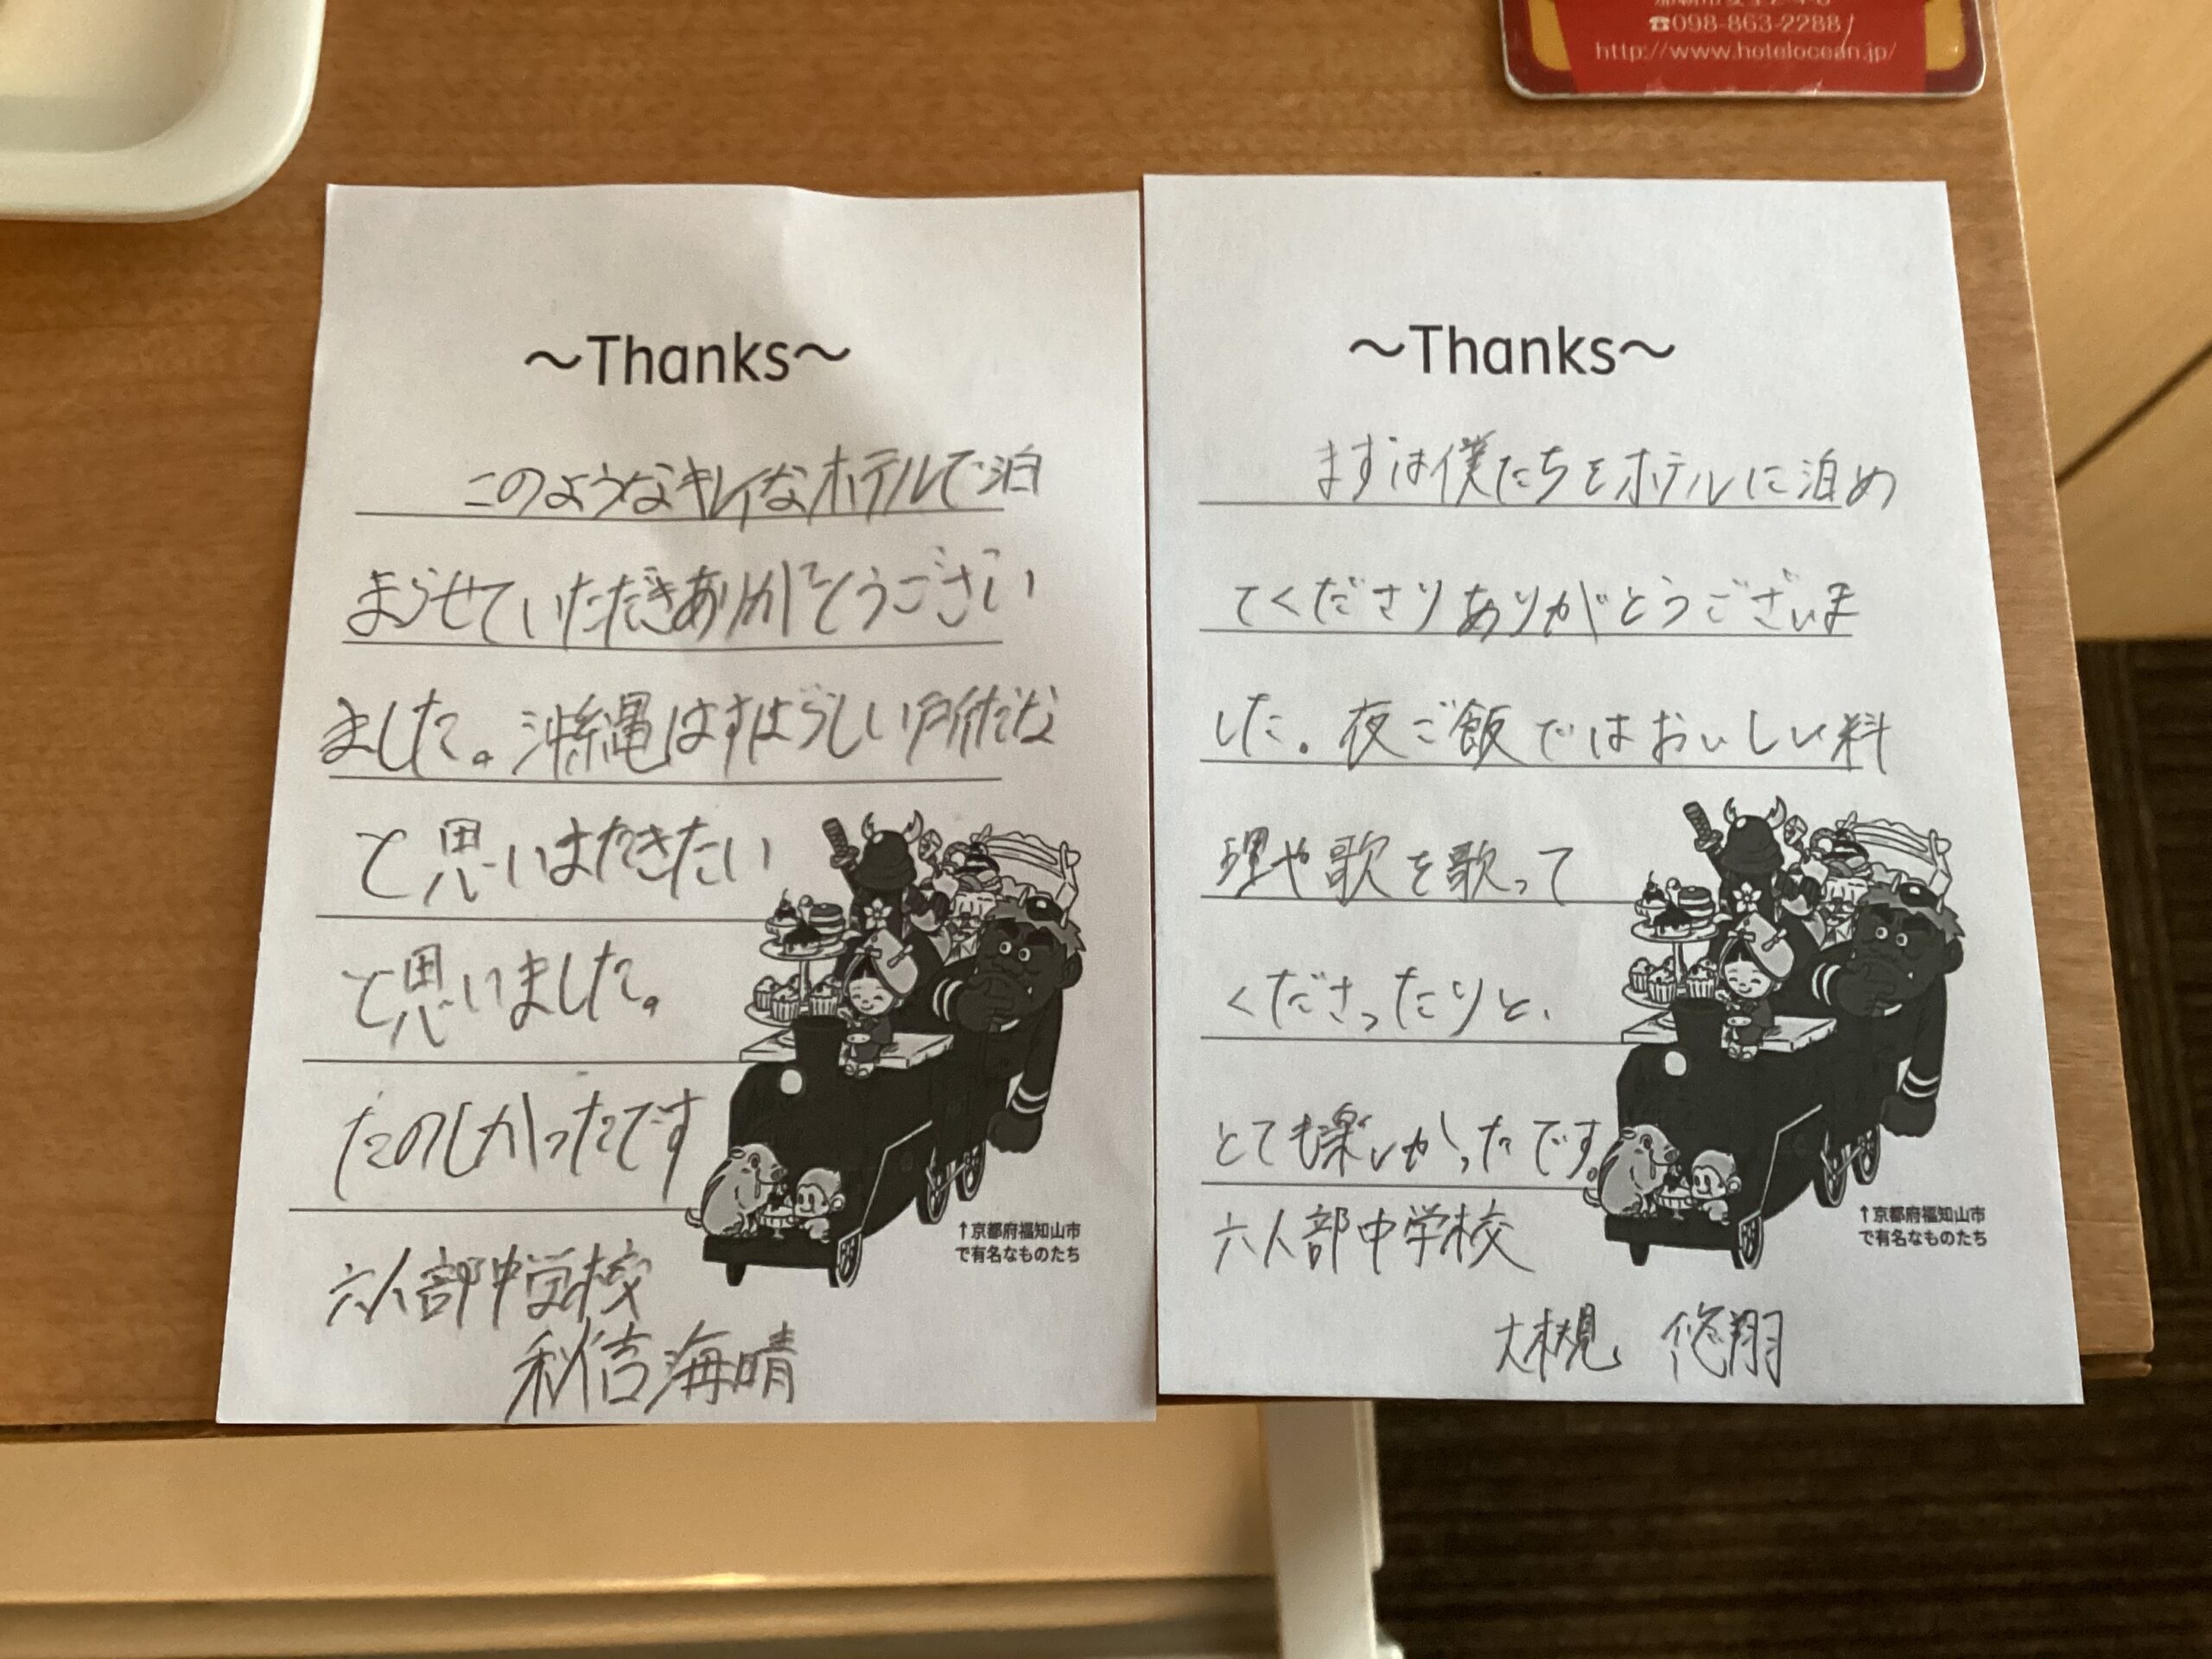 ☎098-863-2288/
http://www.hotelocean.jp/
～Thanks～
このようなキレイなホテルで泊
まらせていただきありがとうござい
ました。沖縄はすばらしい所だな
と思いまたきたい
と思いました。
たのしかったです
六人部中学校
秋吉海晴
↑京都府福知山市
で有名なものたち
～Thanks～
まずは僕たちをホテルに泊め
てくださりありがとうございま
した。夜ご飯ではおいしい料
理や歌を歌って
くださったりと、
とても楽しかったです。
六人部中学校
大槻 悠翔
↑京都府福知山市
で有名なものたち